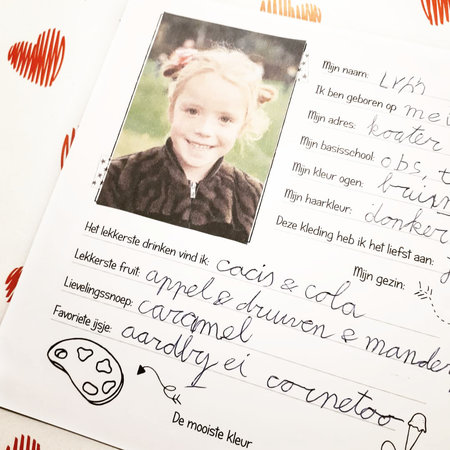 Mijn naam: Lynn
Ik ben geboren op mei
Mijn adres: koater
Mijn basisschool: obs, t
Mijn kleur ogen: bruin
Mijn haarkleur: donker
Deze kleding heb ik het liefst aan:
Mijn gezin:
Het lekkerste drinken vind ik: cacis & cola
Lekkerste fruit: appel & druiven & mander
Lievelingssnoep: caramel
Favoriete ijsje: aardby ei cornetoo
De mooiste kleur